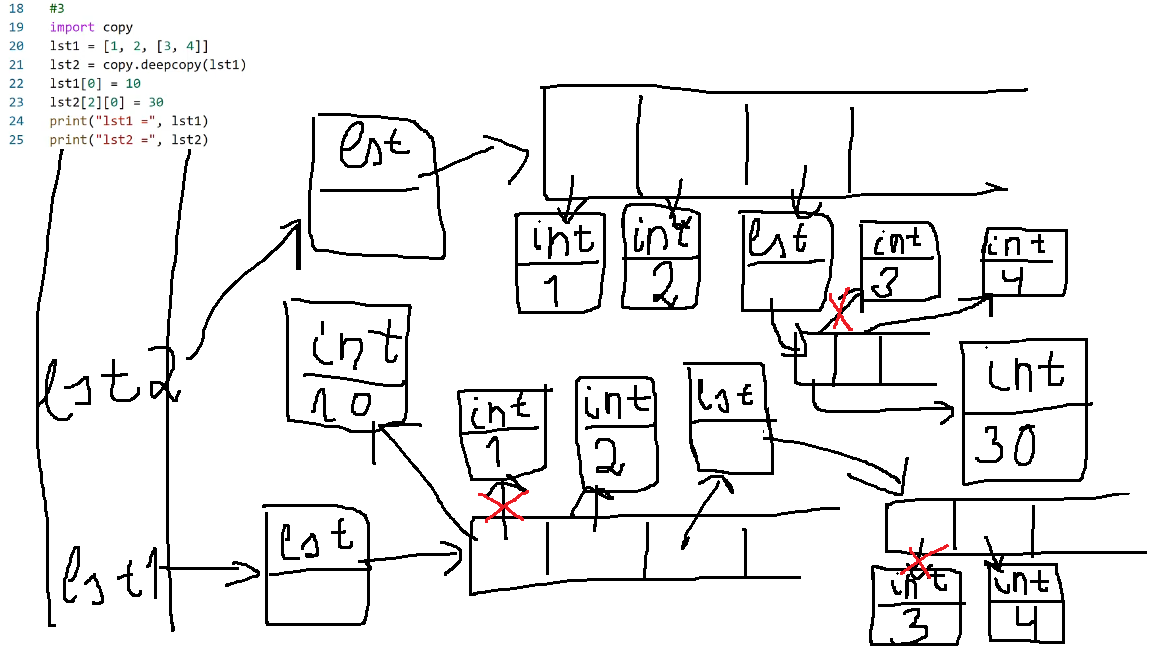 18 #3
19 import copy
20 lst1 = [1, 2, [3, 4]]
21 lst2 = copy.deepcopy(lst1)
22 lst1[0] = 10
23 lst2[2][0] = 30
24 print("lst1 =", lst1)
25 print("lst2 =", lst2)
lst
int
1
int
2
lst
int
3
int
4
lst2
int
10
int
1
int
2
lst
int
30
lst1
lst
int
3
int
4